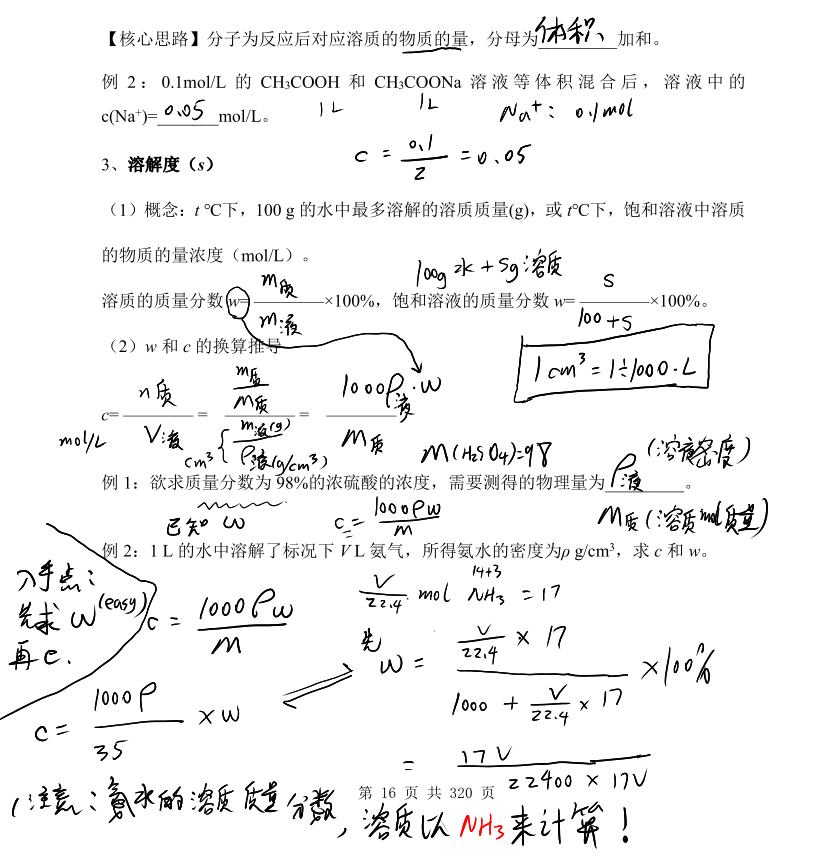 【核心思路】分子为反应后对应溶质的物质的量，分母为 体积 加和。
例 2：0.1mol/L 的 CH₃COOH 和 CH₃COONa 溶液等体积混合后，溶液中的
1L 1L Na⁺: 0.1mol
c(Na⁺)= 0.05 mol/L。
c = 0.1/2 = 0.05
3、溶解度（s）
（1）概念：t ℃下，100 g 的水中最多溶解的溶质质量(g)，或 t℃下，饱和溶液中溶质
的物质的量浓度（mol/L）。
100g水+Sg溶质
溶质的质量分数 w= m质/m液 ×100%，饱和溶液的质量分数 w= S/100+S ×100%。
（2）w 和 c 的换算推导
1cm³=1÷1000·L
c= n质/V液 = m质/M质 / m液(g)/ρ液(g/cm³) = 1000ρ液·w/M质
mol/L
cm³
M(H₂SO₄)=98
(溶液密度)
例 1：欲求质量分数为 98%的浓硫酸的浓度，需要测得的物理量为 ρ液 。
已知 w
c = 1000ρw/M
M质(溶质mol质量)
例 2：1 L 的水中溶解了标况下 V L 氨气，所得氨水的密度为ρ g/cm³，求 c 和 w。
入手点：
先求 w (easy)
再 c.
V/22.4 mol
14+3
NH₃ = 17
c = 1000ρw/M
先 w = V/22.4 × 17 / 1000 + V/22.4 × 17 ×100%
c = 1000ρ/35 × w
= 17V / 22400 × 17V
第 16 页 共 320 页
(注意：氨水的溶质质量分数，溶质以 NH₃ 来计算！